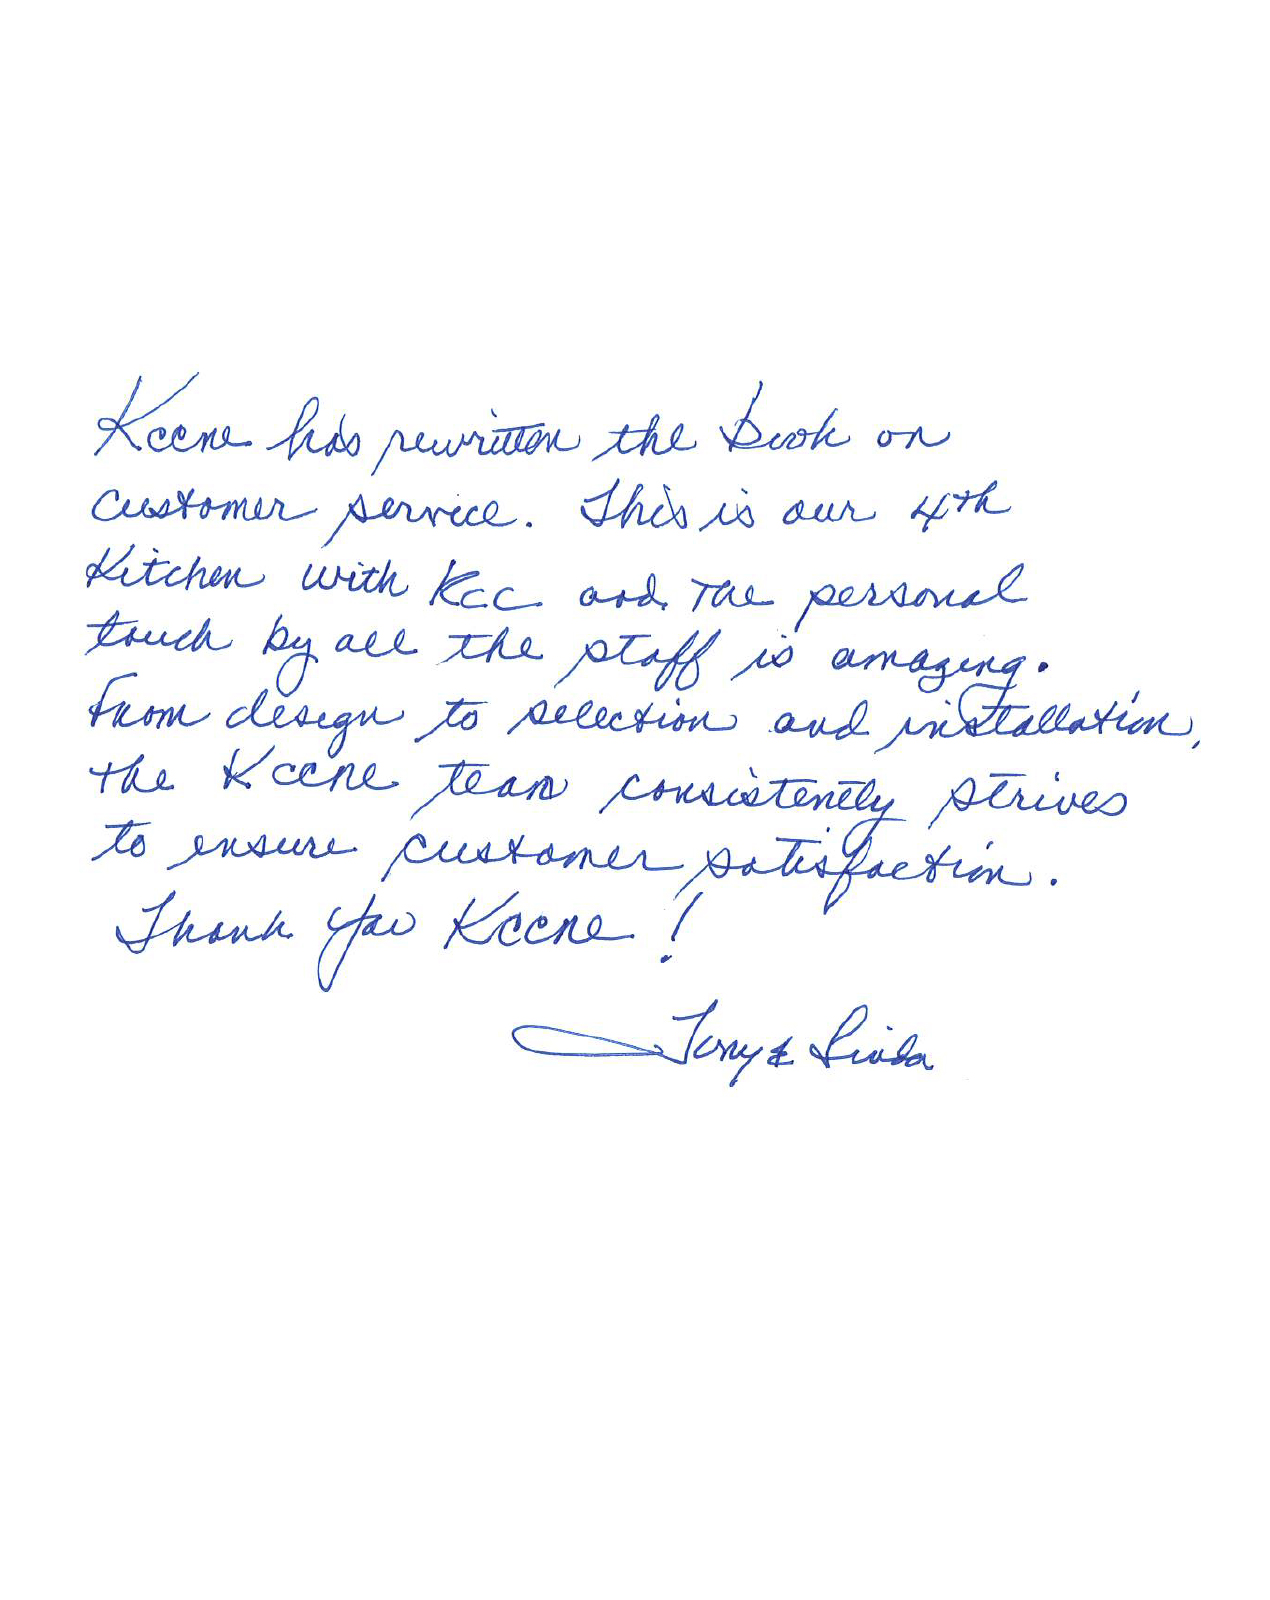 Keene has rewritten the book on
customer service. This is our 4th
Kitchen with KCC and The personal
touch by all the staff is amazing.
From design to selection and installation,
the Keene team consistently strives
to ensure customer satisfaction.
Thank you Keene!
Tony & Linda